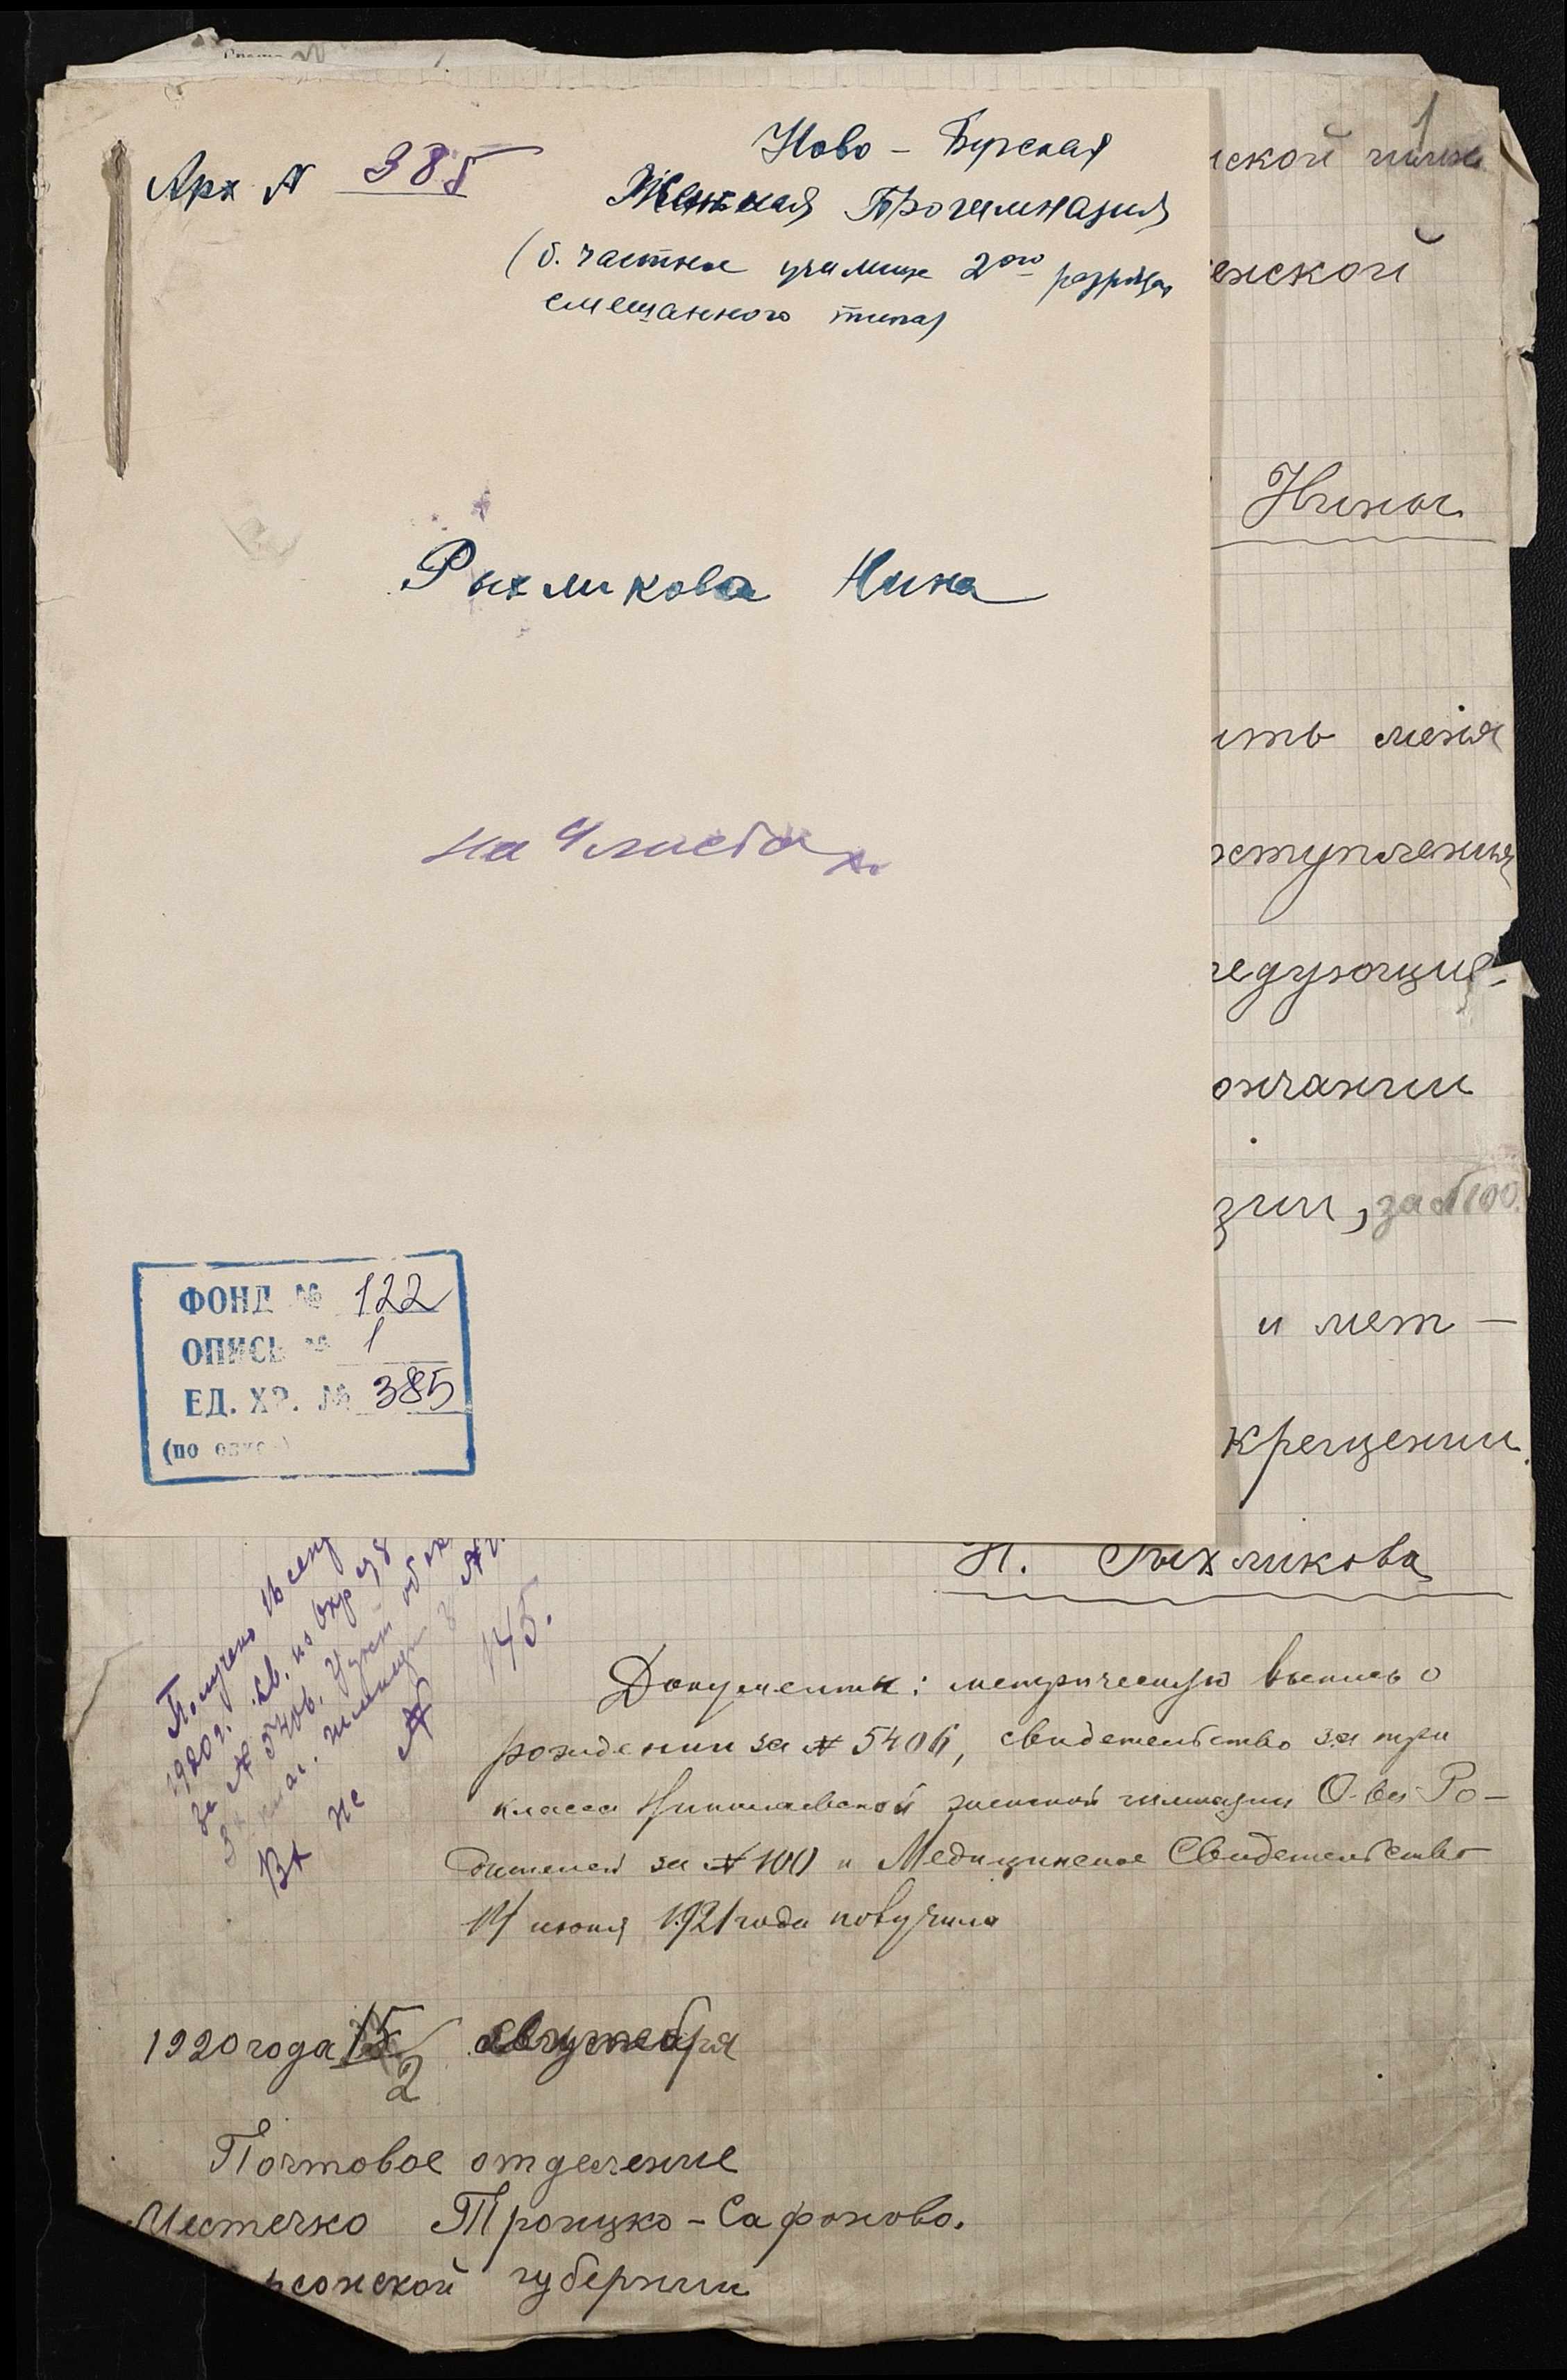 Арх № 385
Ново - Бугская
Женская Прогимназия
(б. частное училище 2ого разряда
смешанного типа)
Рыхликова Нина
на 4 листах
ФОНД № 122
ОПИСЬ № 1
ЕД. ХР. № 385
(по описи)
1
ской гимн
енской
Нины
ить меня
оступления
ледующие
ончании
зии, за №100.
и мет-
крещении.
Н. Рыхликова
Получено
1920 г.
за № 5406.
145.
Документы: метрическую выпись о
рождении за № 5406, свидетельство за три
класса Николаевской женской гимназии О-ва Ро-
дителей за № 100 и Медицинское Свидетельство
14 июня 1921 года получила
1920 года 15
2
Почтовое отделение
Местечко Троицко-Сафоново.
рсонской губернии